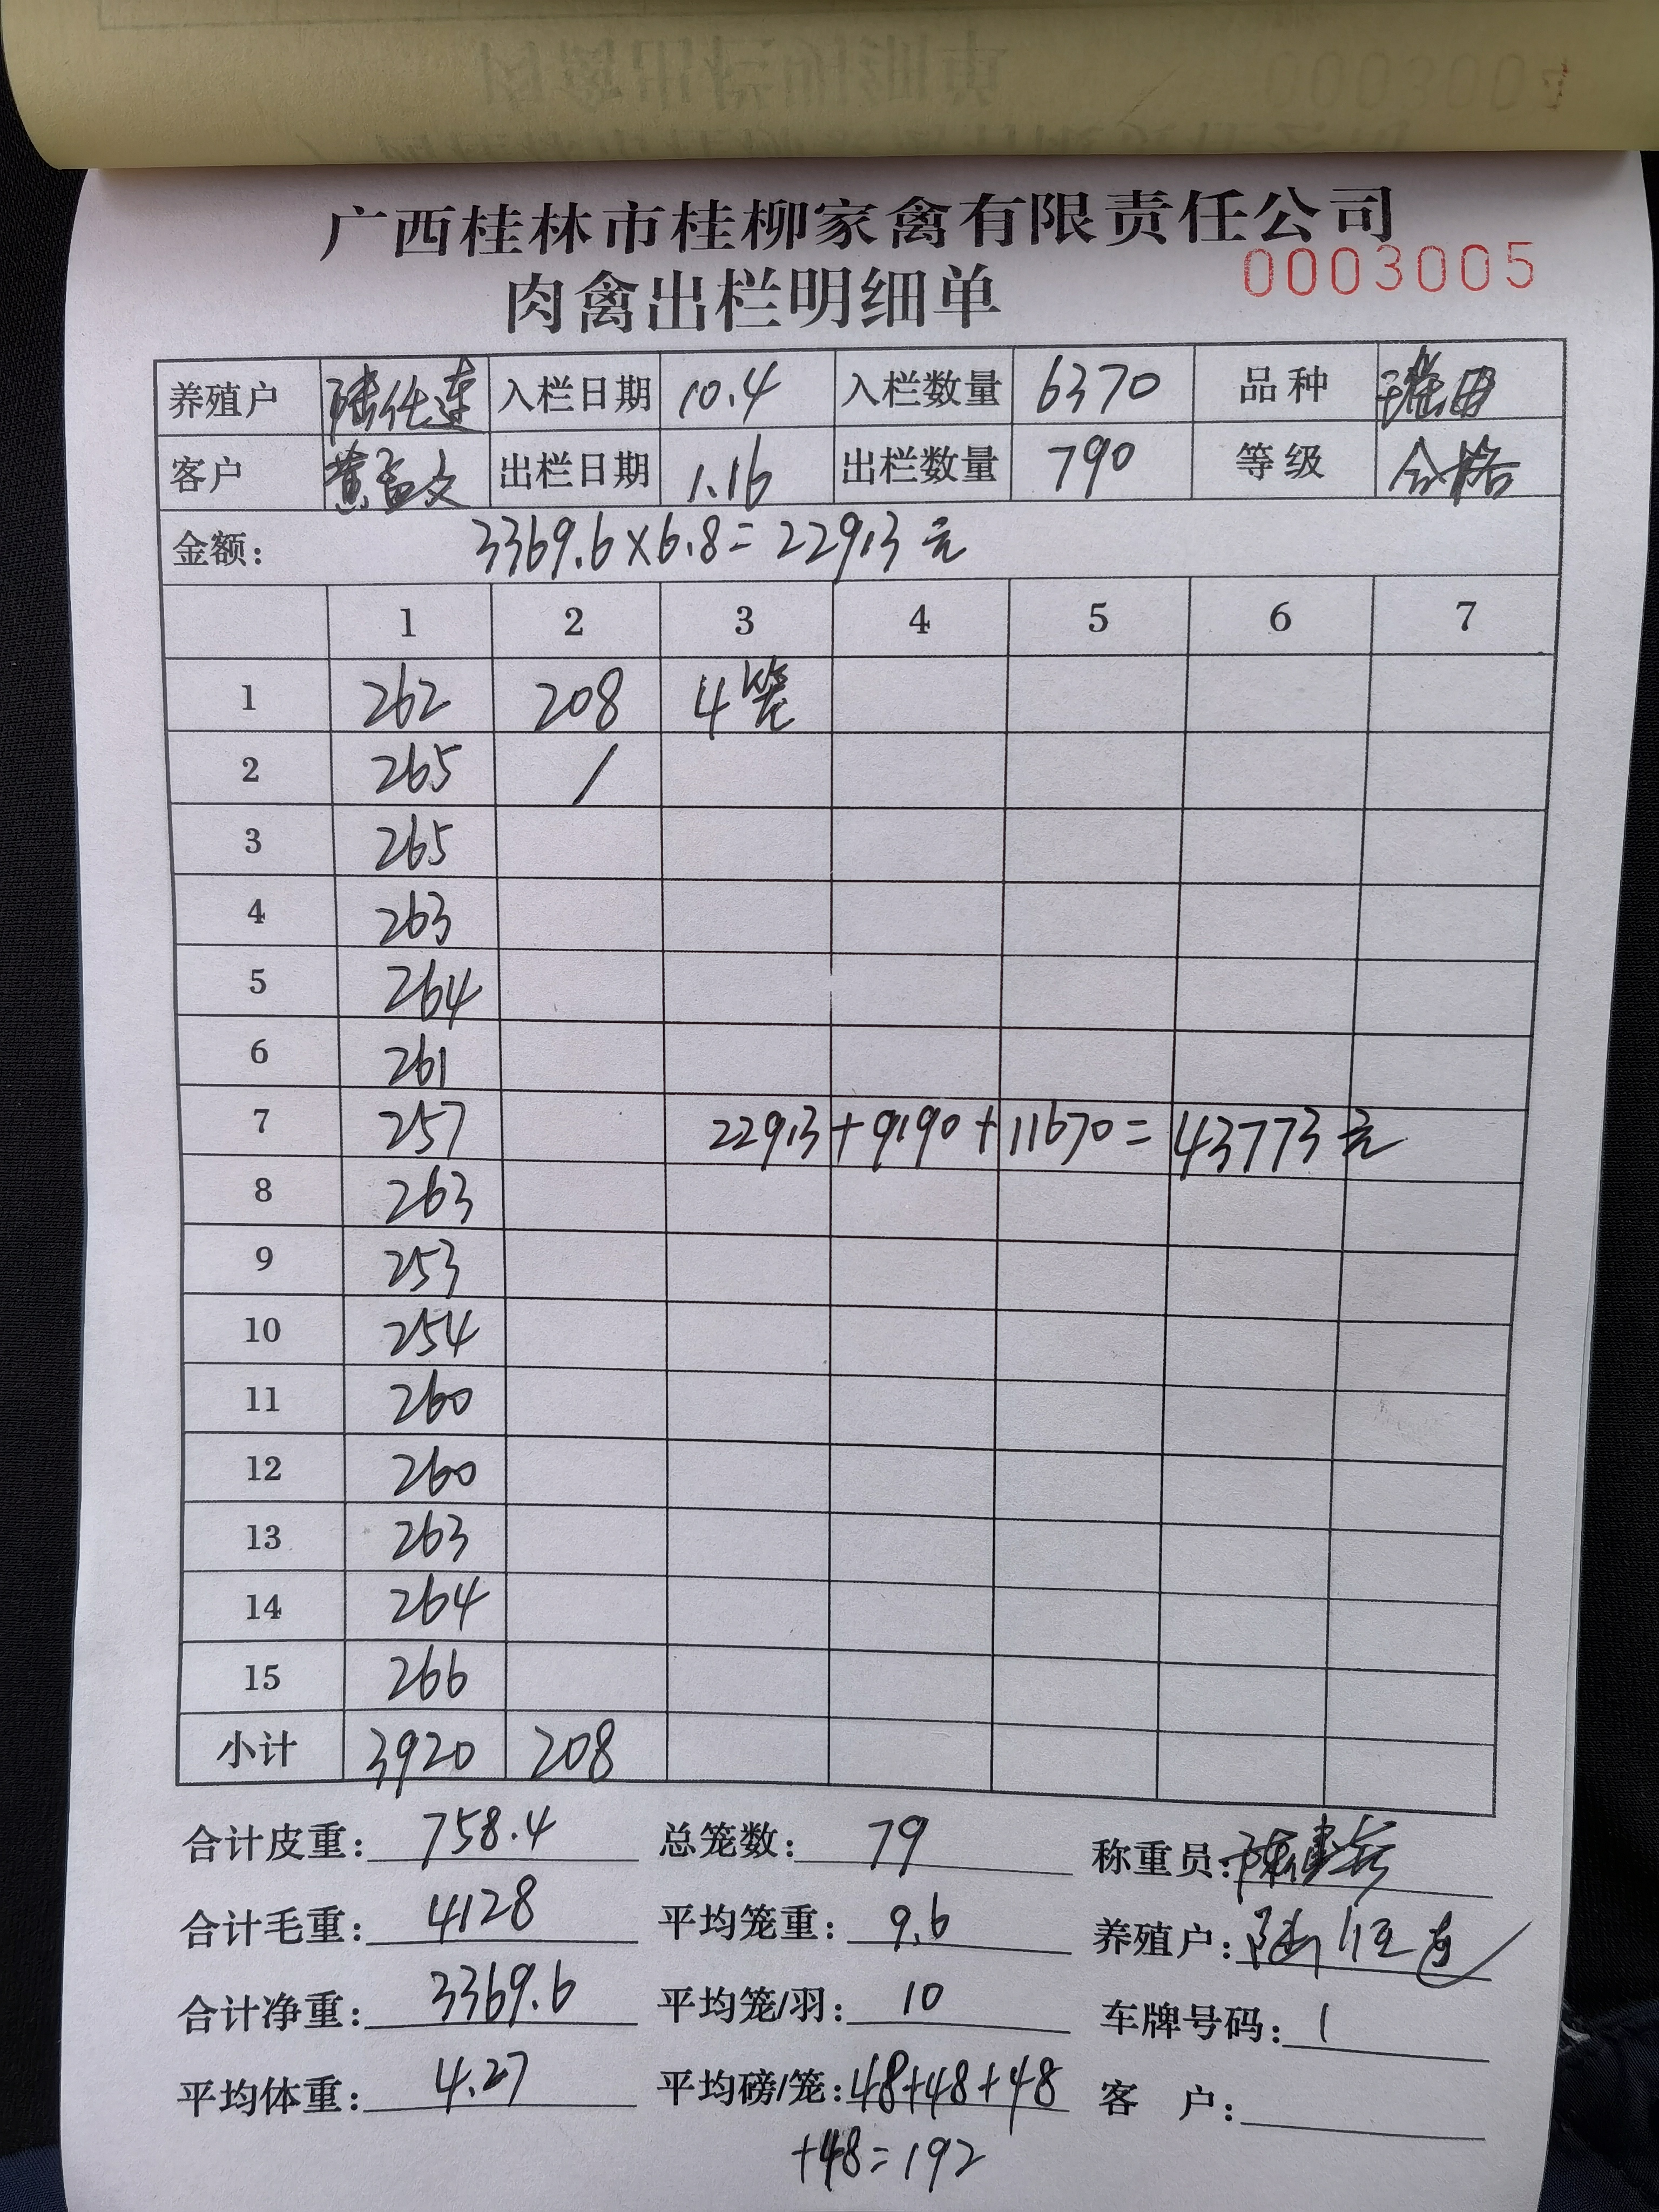 广西桂林市桂柳家禽有限责任公司
肉禽出栏明细单 0003005
养殖户 入栏日期 10.4 入栏数量 6370 品种
客户 黄孟文 出栏日期 1.16 出栏数量 790 等级 合格
金额: 3369.6×6.8=22913元
1 2 3 4 5 6 7
1 262 208 4笼
2 265 /
3 265
4 263
5 264
6 261
7 257 22913+9190+11670=43773元
8 263
9 253
10 254
11 260
12 260
13 263
14 264
15 266
小计 3920 208
合计皮重: 758.4 总笼数: 79 称重员:
合计毛重: 4128 平均笼重: 9.6 养殖户:
合计净重: 3369.6 平均笼/羽: 10 车牌号码: 1
平均体重: 4.27 平均磅/笼: 48+48+48 客户:
+48=192